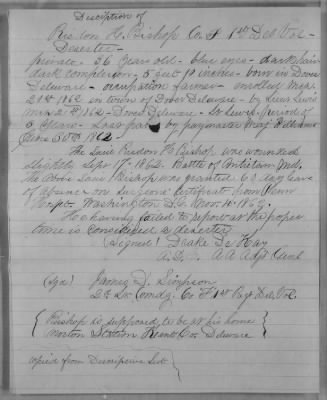 Description of
Risdon H. Bishop Co. F 1st Del Vol
Deserter
private - 36 years old - blue eyes - dark hair
dark complexion - 5 feet 10 inches - born in Dover
Delaware - occupation farmer - enrolled
21st 1862 in town of Dover Delaware - by Lewis
1862 - Dover Delaware - Lt Lewis - period of
3 years - last paid by paymaster Maj. Williams
30th 1862.
The said Risdon H Bishop was wounded
slightly Sep 17th 1862. Battle of Antietam Md.
The above said Bishop was granted 60 day leave
of absence on Surgeons certificate from
Hospt. Washington D.C. Nov. 4. 1862.
He having failed to report at the proper
time is considered a deserter
(Signed) Drake De Kay
A.D.C. A A Adjt Genl
(sgd) James D. Simpson
2nd Lt. Comdg. Co F 1st Reg. Del. Vol.
Bishop is supposed to be at his home
Station Kent Co. Delaware
copied from Descriptive List